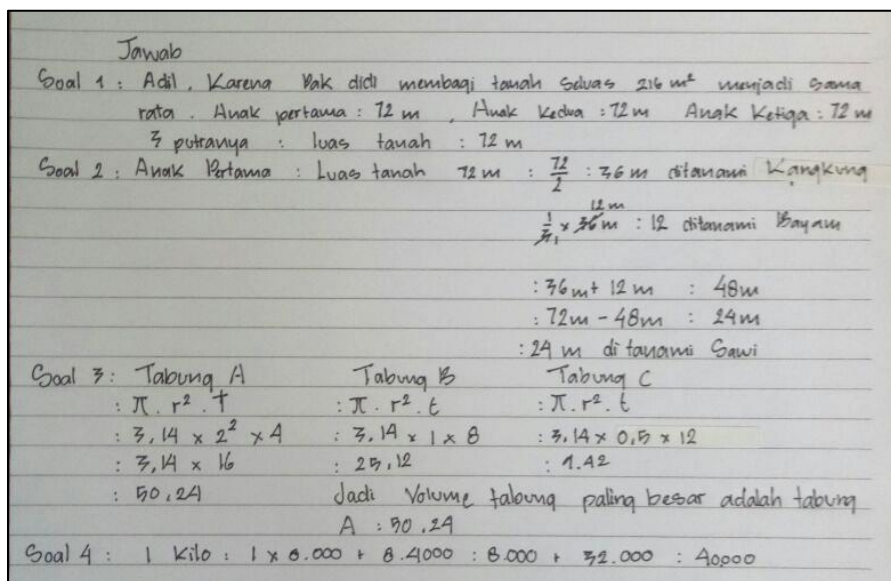 Jawab
Soal 1 : Adil, Karena Pak didi membagi tanah seluas 216 m² menjadi sama
rata. Anak pertama : 72 m , Anak Kedua : 72 m Anak Ketiga : 72 m
3 putranya : luas tanah : 72 m
Soal 2 : Anak Pertama : Luas tanah 72 m : 72/2 : 36 m ditanami Kangkung
12 m
1/3 1 x 36 m : 12 ditanami Bayam
: 36 m + 12 m : 48 m
: 72 m - 48 m : 24 m
: 24 m di tanami Sawi
Soal 3 : Tabung A Tabung B Tabung C
: π . r² . T : π . r² . t : π . r² . t
: 3,14 x 2² x 4 : 3.14 x 1 x 8 : 3.14 x 0,5 x 12
: 3,14 x 16 : 25,12 : 9.42
: 50.24 Jadi Volume tabung paling besar adalah tabung
A : 50.24
Soal 4 : 1 Kilo : 1 x 8.000 + 8.4000 : 8.000 + 32.000 : 40000